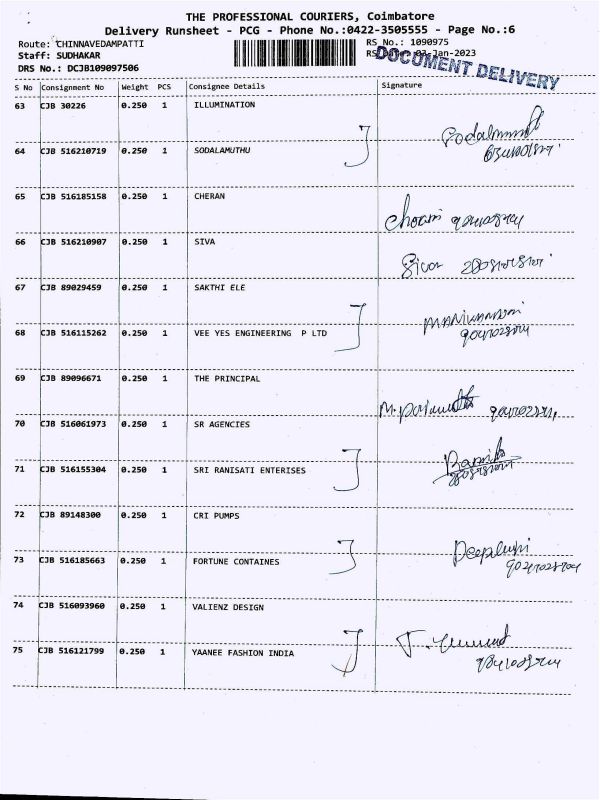 THE PROFESSIONAL COURIERS, Coimbatore
Delivery Runsheet - PCG - Phone No.:0422-3505555 - Page No.:6
Route: CHINNAVEDAMPATTI
RS No.: 1090975
Staff: SUDHAKAR
-Jan-2023
DRS No.: DCJB109097506
DOCUMENT DELIVERY
S No Consignment No Weight PCS Consignee Details Signature
63 CJB 30226 0.250 1 ILLUMINATION
64 CJB 516210719 0.250 1 SODALAMUTHU
65 CJB 516185158 0.250 1 CHERAN
66 CJB 516210907 0.250 1 SIVA
67 CJB 89029459 0.250 1 SAKTHI ELE
68 CJB 516115262 0.250 1 VEE YES ENGINEERING P LTD
69 CJB 89096671 0.250 1 THE PRINCIPAL
70 CJB 516061973 0.250 1 SR AGENCIES
71 CJB 516155304 0.250 1 SRI RANISATI ENTERISES
72 CJB 89148300 0.250 1 CRI PUMPS
73 CJB 516185663 0.250 1 FORTUNE CONTAINES
74 CJB 516093960 0.250 1 VALIENZ DESIGN
75 CJB 516121799 0.250 1 YAANEE FASHION INDIA